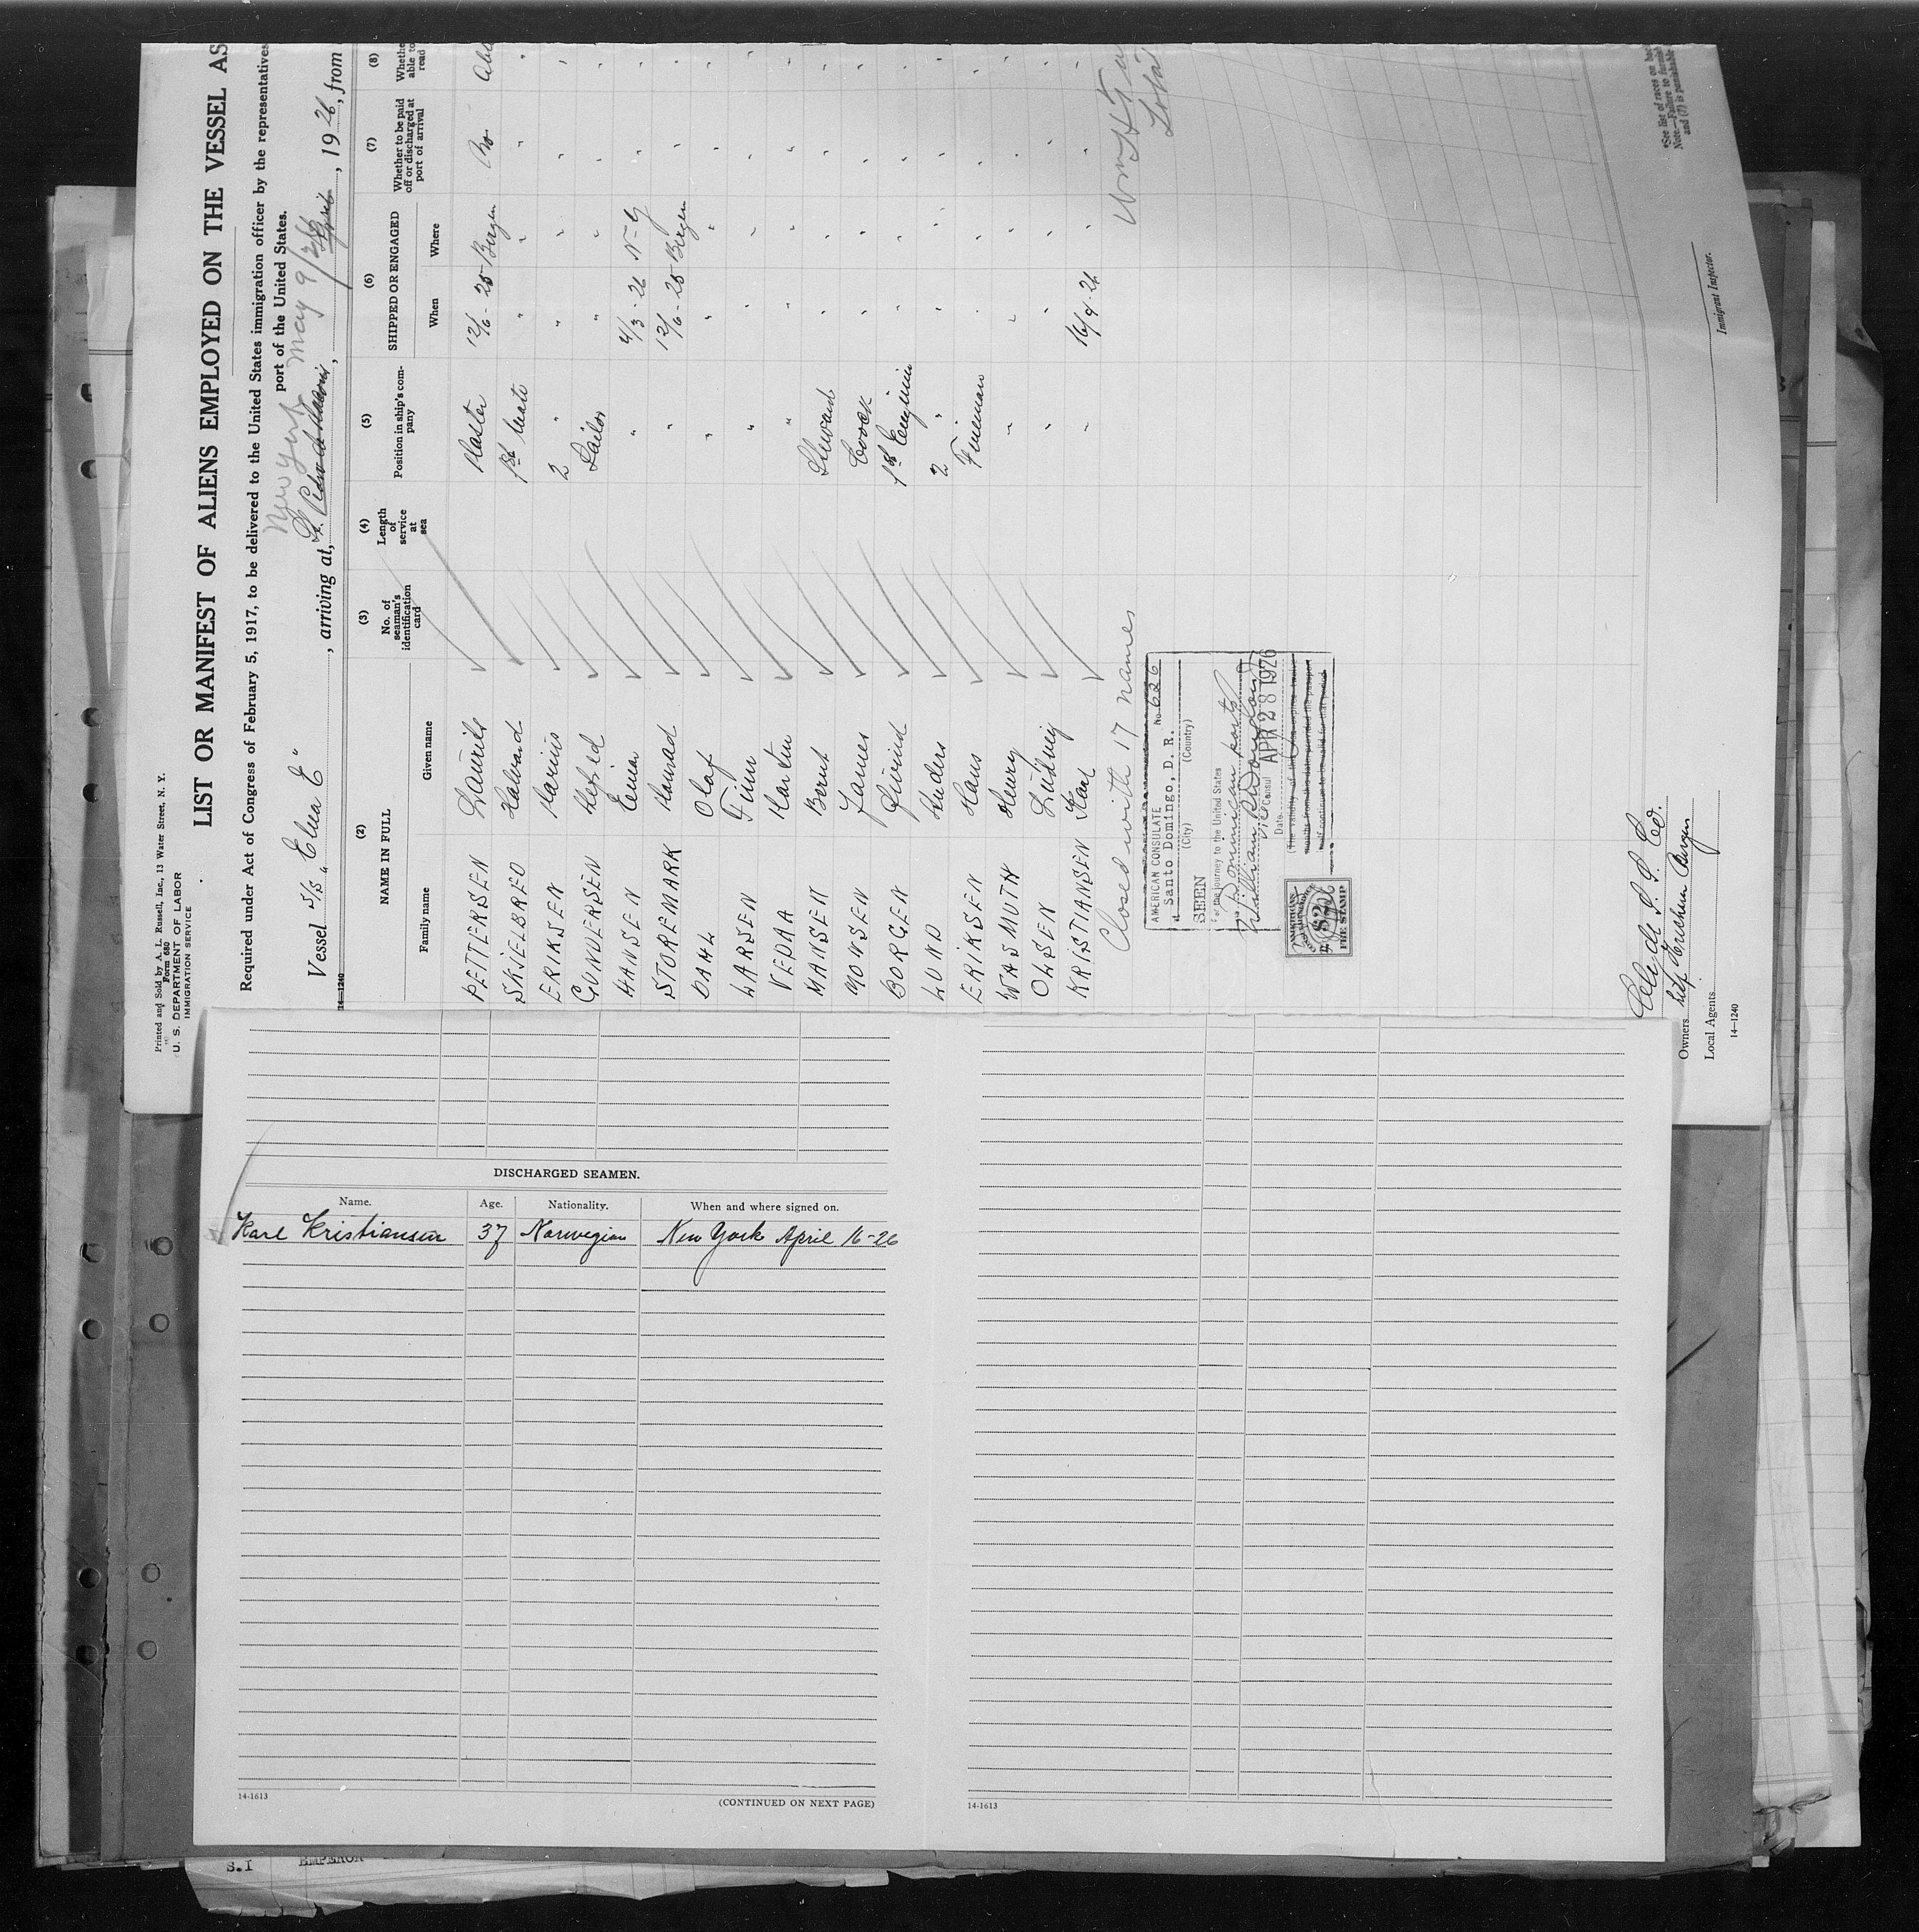 Printed and Sold by A. L. Russell, Inc., 13 Water Street, N. Y.
Form 680
U. S. DEPARTMENT OF LABOR
IMMIGRATION SERVICE
LIST OR MANIFEST OF ALIENS EMPLOYED ON THE VESSEL AS
Required under Act of Congress of February 5, 1917, to be delivered to the United States immigration officer by the representatives
port of the United States.
New York May 9/26
Vessel S/S "Elna E", arriving at, , 1926, from
14—1240
(2) NAME IN FULL
Family name Given name
(3) No. of seaman's identification card
(4) Length of service at sea
(5) Position in ship's company
(6) SHIPPED OR ENGAGED
When Where
(7) Whether to be paid off or discharged at port of arrival
(8) Whether able to read
PETTERSEN Laurits Master 12/6-25 Bergen No
SKJELBRED Halvard 1st Mate " " "
ERIKSEN Marius 2 " " " "
GUNDERSEN Sailor " " "
HANSEN Einar " 4/3-26 N-Y "
STOREMARK Konrad " 12/6-25 Bergen "
DAHL Olaf " " " "
LARSEN Finn " " "
VEDAA Karsten " " " "
MANSEN Bernt Steward " " "
MONSEN James Cook " " "
BORGEN Eivind 1st Engineer " " "
LUND Anders 2 " " " "
ERIKSEN Hans Fireman " " "
WASMUTH Henry " " " "
OLSEN Ludwig " " " "
KRISTIANSEN Karl " 16/4-26 " "
Closed with 17 names
AMERICAN CONSULATE
No. 626
Santo Domingo, D. R.
(City) (Country)
SEEN
For the journey to the United States
via Dominican ports
Vice Consul
Date APR 28 1926
AMERICAN
$2
FEE STAMP
Owners
Local Agents
14—1240
Immigrant Inspector.
*See list of races on back
Note.—Failure to furnish
and (7) is punishable
DISCHARGED SEAMEN.
Name. Age. Nationality. When and where signed on.
Karl Kristiansen 37 Norwegian New York April 16-26
14-1613
(CONTINUED ON NEXT PAGE)
14-1613
S.I EMPEROR